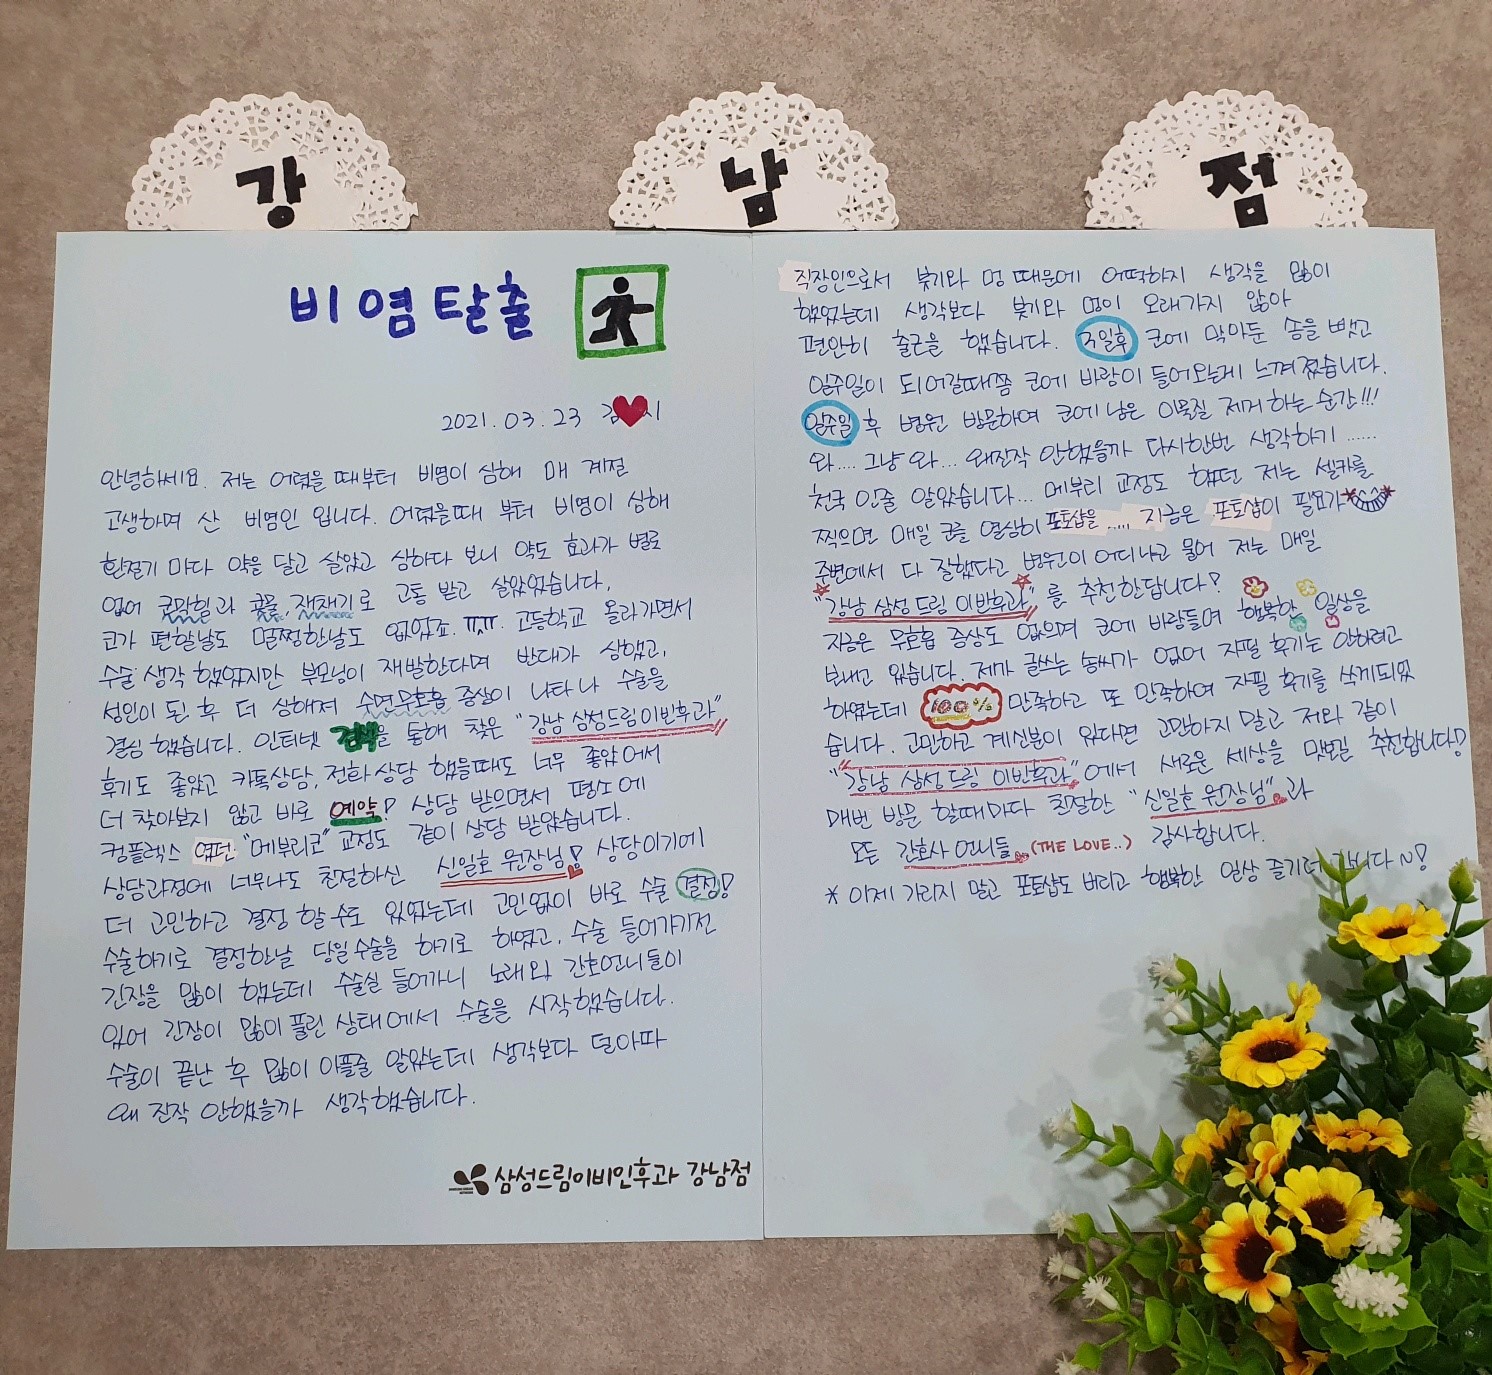 강 남 점
비염탈출
2021.03.23
안녕하세요. 저는 어렸을 때부터 비염이 심해 매 계절
고생하며 산 비염인 입니다. 어렸을때 부터 비염이 심해
환절기 마다 약을 달고 살았고 심하다 보니 약도 효과가 별로
없어 코막힘과 콧물, 재채기로 고통 받고 살았었습니다.
코가 편한날도 멀쩡한날도 없었죠. ㅠㅠ. 고등학교 올라가면서
수술 생각 했었지만 부모님이 재발한다며 반대가 심했고,
성인이 된 후 더 심해져 수면무호흡 증상이 나타나 수술을
결심 했습니다. 인터넷 검색을 통해 찾은 "강남 삼성드림이반후과"
후기도 좋았고 카톡상담, 전화상담 했을때도 너무 좋았어서
더 찾아보지 않고 바로 예약! 상담 받으면서 평소에
컴플렉스 였던 "메부리코" 교정도 같이 상담 받았습니다.
상담과정에 너무나도 친절하신 신일호 원장님! 상담이기에
더 고민하고 결정 할수도 있었는데 고민없이 바로 수술 결정!
수술하기로 결정한날 당일수술을 하기로 하였고, 수술 들어가기전
긴장을 많이 했는데 수술실 들어가니 노래와 간호언니들이
있어 긴장이 많이 풀린 상태에서 수술을 시작했습니다.
수술이 끝난 후 많이 아플줄 알았는데 생각보다 덜아파
왜 진작 안했을까 생각했습니다.
삼성드림이비인후과 강남점
직장인으로서 붓기와 멍 때문에 어떡하지 생각을 많이
했었는데 생각보다 붓기와 멍이 오래가지 않아
편안히 출근을 했습니다. 코에 막아둔 솜을 뺐고
일주일이 되어갈때쯤 코에 바람이 들어오는게 느껴졌습니다.
일주일 후 병원 방문하여 코에 남은 이물질 제거 하는 순간!!!
와.... 그냥 와... 왜진작 안했을까 다시한번 생각하기 ......
천국 인줄 알았습니다... 메부리 교정도 했던 저는 셀카를
찍으면 매일 코를 열심히 포토샵을 ..... 지금은 포토샵이 필요가
주변에서 다 잘했다고 병원이 어디냐고 물어 저는 매일
"강남 삼성드림 이반후과" 를 추천한답니다!
지금은 무호흡 증상도 없으며 코에 바람들며 행복한 일상을
보내고 있습니다. 제가 글쓰는 솜씨가 없어 자필 후기는 안하려고
하였는데 100% 만족하고 또 만족하여 자필 후기를 쓰게되었
습니다. 고민하고 계신분이 있다면 고민하지 말고 저와 같이
"강남 삼성드림 이반후과"에서 새로운 세상을 맛보길 추천합니다!
매번 방문 할때마다 친절한 "신일호 원장님"과
모든 간호사 언니들 (THE LOVE..) 감사합니다.
* 이제 가리지 말고 포토샵도 버리고 행복한 일상 즐기러 갑니다~!